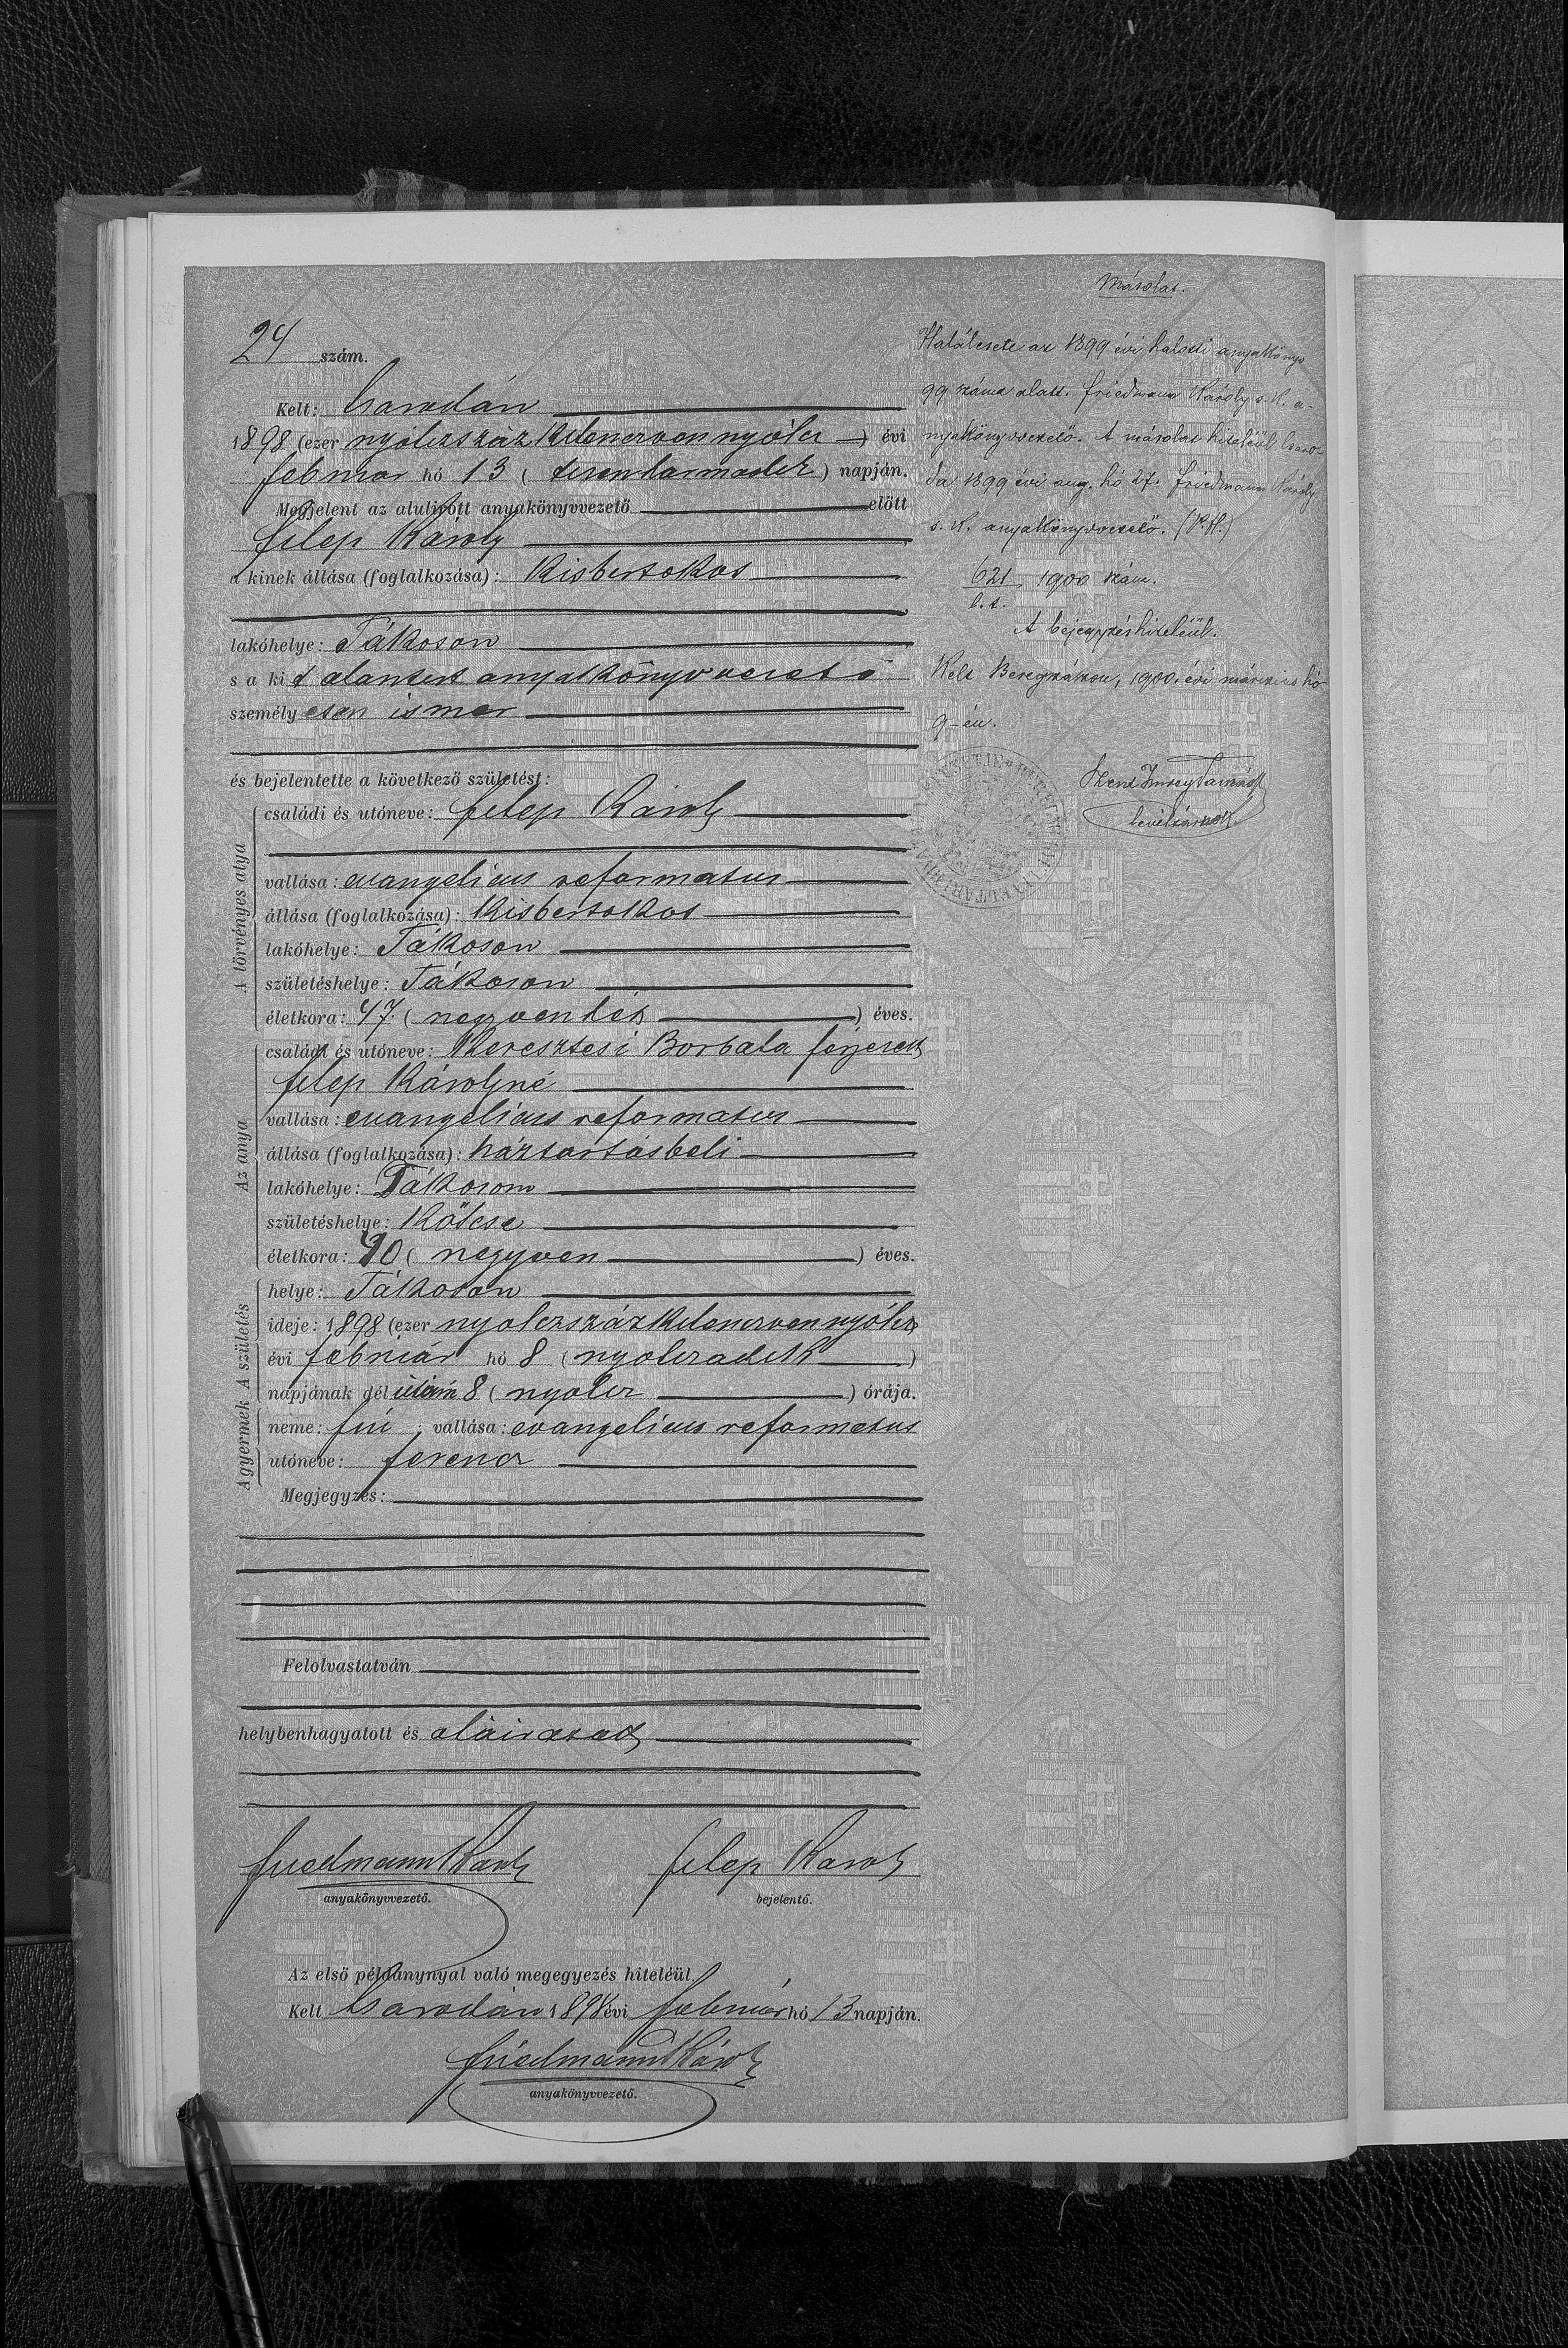 24 szám.
Kelt: Csarodán
1898 (ezer nyolczszázkilenczvennyolcz) évi
február hó 13 (tizenharmadik) napján.
Megjelent az alulirott anyakönyvvezető előtt
Filep Károly
a kinek állása (foglalkozása): Kisbirtokos
lakóhelye: Tákoson
s a kit alantirt anyakönyvvezető
személyesen ismer
és bejelentette a következő születést:
A törvényes atya
családi és utóneve: Filep Károly
vallása: evangelicus reformatus
állása (foglalkozása): Kisbirtokos
lakóhelye: Tákoson
születéshelye: Tákoson
életkora: 47 (negyvenhét) éves.
Az anya
családi és utóneve: Keresztesi Borbála férjezett
Filep Károlyné
vallása: evangelicus reformatus
állása (foglalkozása): háztartásbeli
lakóhelye: Tákoson
születéshelye: Kölcse
életkora: 40 (negyven) éves.
A születés
helye: Tákoson
ideje: 1898 (ezer nyolczszázkilenczvennyolcz
évi február hó 8 (nyolczadik)
napjának dél után 8 (nyolcz) órája.
A gyermek
neme: fiú; vallása: evangelicus reformatus
utóneve: Ferencz
Megjegyzés:
Felolvastatván
helybenhagyatott és aláiratott
Friedmann Károly Filep Károly
anyakönyvvezető. bejelentő.
Az első példánynyal való megegyezés hiteléül.
Kelt Csarodán 1898 évi február hó 13 napján.
Friedmann Károly
anyakönyvvezető.
Másolat.
Halálesete az 1899 évi halotti anyakönyv
99 száma alatt. Friedmann Károly s. k. a-
nyakönyvvezető. A másolat hiteléül Csaro-
da 1899 évi aug. hó 27. Friedmann Károly
s. k. anyakönyvvezető. (P. H.)
621 1900 szám.
A bejegyzés hiteléül.
Kelt Beregszászon, 1900. évi márczius hó
9-én.
levéltárnok